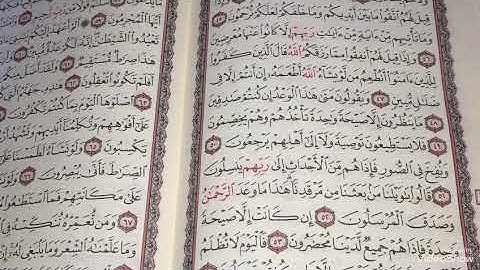 قِيلَ لَهُمُ ٱتَّقُوا۟ مَا بَيْنَ أَيْدِيكُمْ وَمَا خَلْفَكُمْ لَعَلَّكُمْ تُرْحَمُونَ
وَمَا تَأْتِيهِم مِّنْ ءَايَةٍ مِّنْ ءَايَـٰتِ رَبِّهِمْ إِلَّا كَانُوا۟ عَنْهَا مُعْرِضِينَ
٤٦ وَإِذَا قِيلَ لَهُمْ أَنفِقُوا۟ مِمَّا رَزَقَكُمُ ٱللَّهُ قَالَ ٱلَّذِينَ كَفَرُوا۟
لِلَّذِينَ ءَامَنُوٓا۟ أَنُطْعِمُ مَن لَّوْ يَشَآءُ ٱللَّهُ أَطْعَمَهُۥٓ إِنْ أَنتُمْ إِلَّا فِى
ضَلَـٰلٍ مُّبِينٍ ٤٧ وَيَقُولُونَ مَتَىٰ هَـٰذَا ٱلْوَعْدُ إِن كُنتُمْ صَـٰدِقِينَ
٤٨ مَا يَنظُرُونَ إِلَّا صَيْحَةً وَٰحِدَةً تَأْخُذُهُمْ وَهُمْ يَخِصِّمُونَ
٤٩ فَلَا يَسْتَطِيعُونَ تَوْصِيَةً وَلَآ إِلَىٰٓ أَهْلِهِمْ يَرْجِعُونَ ٥٠
وَنُفِخَ فِى ٱلصُّورِ فَإِذَا هُم مِّنَ ٱلْأَجْدَاثِ إِلَىٰ رَبِّهِمْ يَنسِلُونَ
٥١ قَالُوا۟ يَـٰوَيْلَنَا مَنۢ بَعَثَنَا مِن مَّرْقَدِنَا هَـٰذَا مَا وَعَدَ ٱلرَّحْمَـٰنُ
وَصَدَقَ ٱلْمُرْسَلُونَ ٥٢ إِن كَانَتْ إِلَّا صَيْحَةً
وَٰحِدَةً فَإِذَا هُمْ جَمِيعٌ لَّدَيْنَا مُحْضَرُونَ ٥٣ فَٱلْيَوْمَ لَا تُظْلَمُ
أَيُّهَا ٱلْمُجْرِمُونَ
تَعْبُدُوا۟ ٱلشَّيْطَـٰنَ
هَـٰذَا صِرَٰطٌ مُّسْتَقِيمٌ
أَفَلَمْ تَكُونُوا۟ تَعْقِلُونَ ٦٢ هَـٰذِهِۦ جَهَنَّمُ
٦٣ ٱصْلَوْهَا ٱلْيَوْمَ بِمَا كُنتُمْ تَكْفُرُونَ
عَلَىٰٓ أَفْوَٰهِهِمْ وَتُكَلِّمُنَآ أَيْدِيهِمْ
يَكْسِبُونَ ٦٥ وَلَوْ نَشَآءُ لَطَمَسْنَا
ٱلصِّرَٰطَ فَأَنَّىٰ يُبْصِرُونَ ٦٦
عَلَىٰ مَكَانَتِهِمْ فَمَا ٱسْتَطَـٰعُوا۟
٦٧ وَمَن نُّعَمِّرْهُ نُنَكِّسْهُ فِى
وَمَا عَلَّمْنَـٰهُ ٱلشِّعْرَ وَمَا يَنۢبَغِى لَهُۥٓ
VideoShow